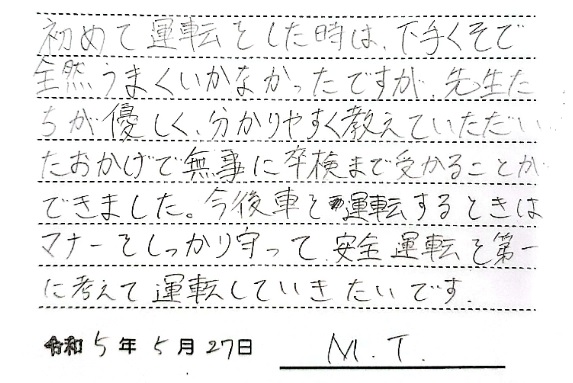 初めて運転をした時は、下手くそで
全然うまくいかなかったですが、先生た
ちが優しく、分かりやすく教えていただい
たおかげで無事に卒検まで受かることが
できました。今後車を運転するときは
マナーをしっかり守って、安全運転を第一
に考えて運転していきたいです。
令和5年5月27日 M.T.